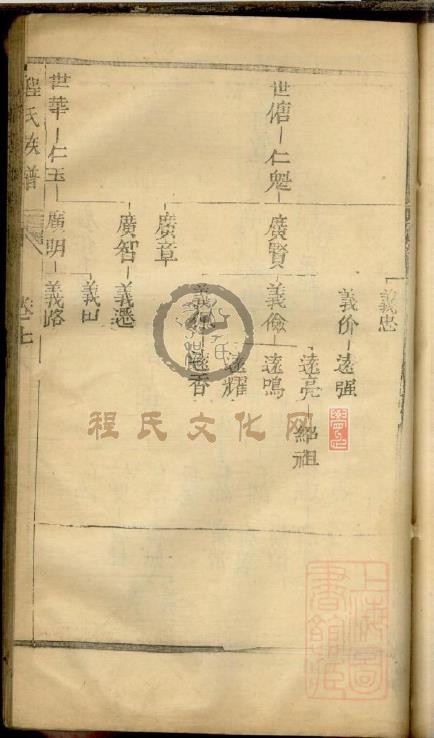 義忠
義价 遠强
遠亮 紹祖
世傏 仁魁 廣賢 義儉 遠鳴
遠耀
遠香
廣章
廣智 義憑
義田
世華 仁玉 廣明 義路
程氏族譜 卷七
程氏文化网
上海圖書館藏